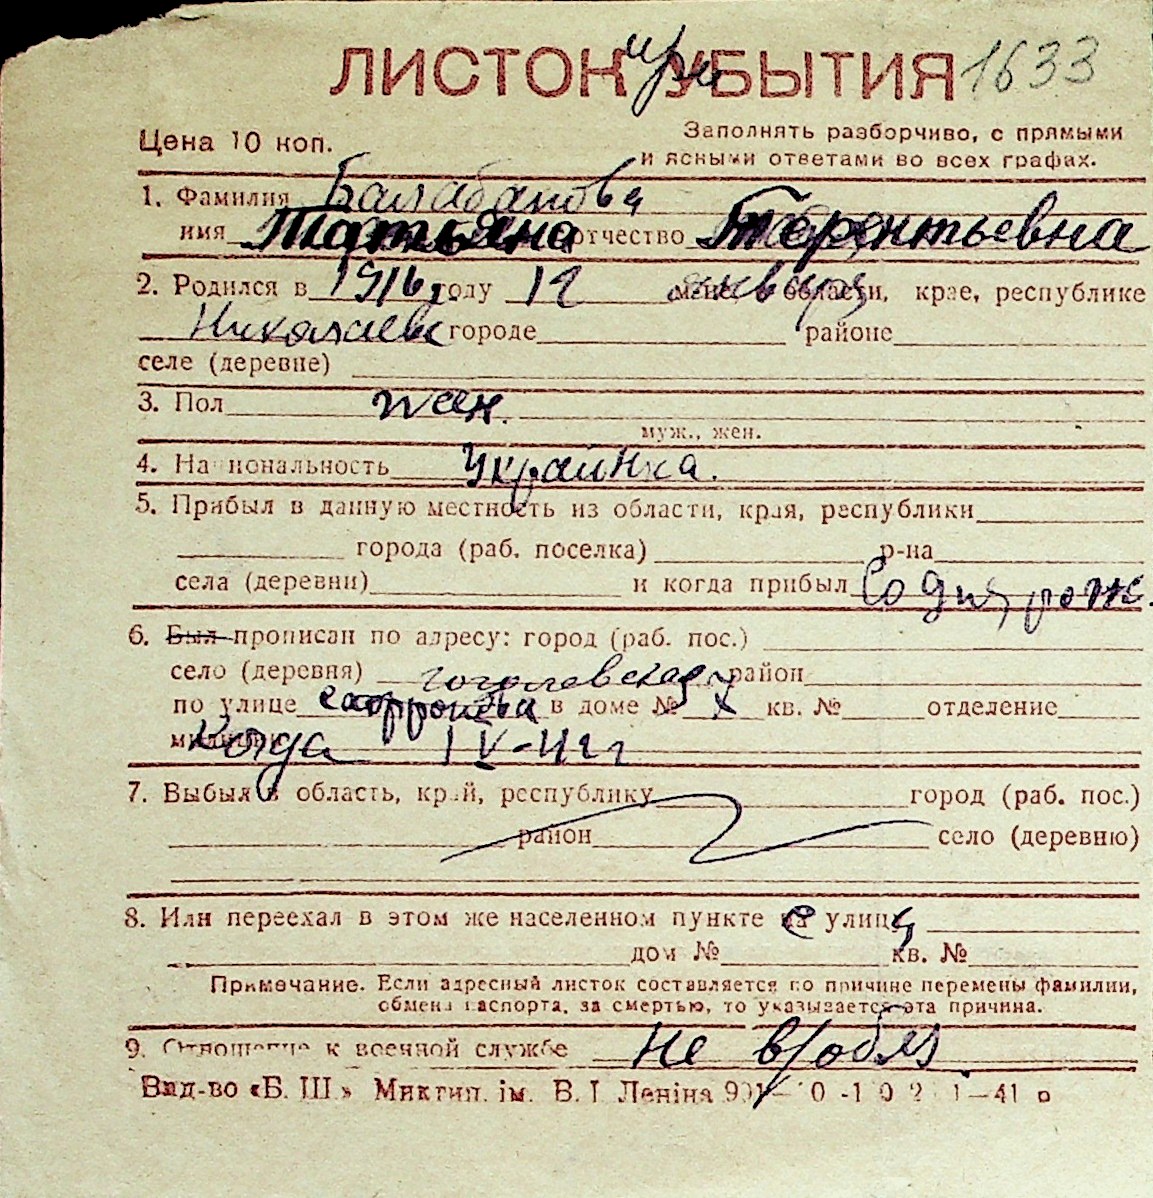 ЛИСТОК УБЫТИЯ при 1633
Цена 10 коп.
Заполнять разборчиво, с прямыми
и ясными ответами во всех графах.
1. Фамилия Балабанова
имя Татьяна отчество Терентьевна
2. Родился в 1916 году 12 января области, крае, республике
Николаевск городе районе
селе (деревне)
3. Пол жен.
муж., жен.
4. Национальность Украинка.
5. Прибыл в данную местность из области, края, республики
города (раб. поселка) р-на
села (деревни) и когда прибыл Со дня рож.
6. Был прописан по адресу: город (раб. пос.)
село (деревня) гоголевская район
по улице в доме № кв. № отделение
милиции Когда IV-42 г
7. Выбыл в область, край, республику город (раб. пос.)
район село (деревню)
8. Или переехал в этом же населенном пункте с улицы
дом № кв. №
Примечание. Если адресный листок составляется по причине перемены фамилии,
обмена паспорта, за смертью, то указывается эта причина.
9. Отношение к военной службе не в/обяз
Вид-во «Б. Ш.» Миктип. ім. В. І. Леніна